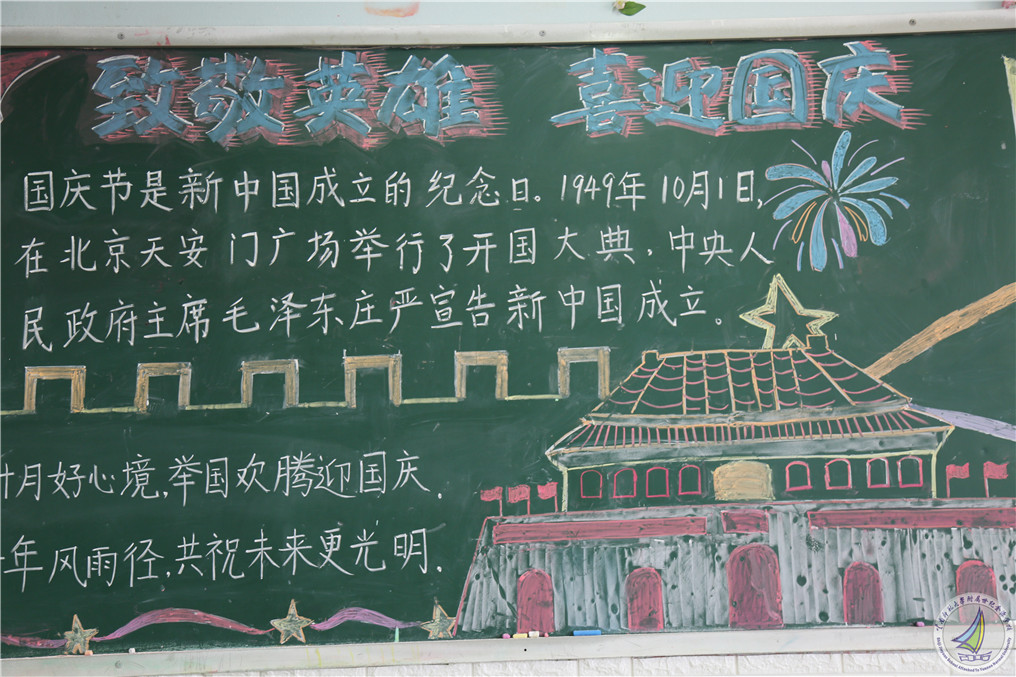 致敬英雄 喜迎国庆
国庆节是新中国成立的纪念日。1949年10月1日,
在北京天安门广场举行了开国大典,中央人
民政府主席毛泽东庄严宣告新中国成立。
月好心境,举国欢腾迎国庆,
年风雨径,共祝未来更光明.